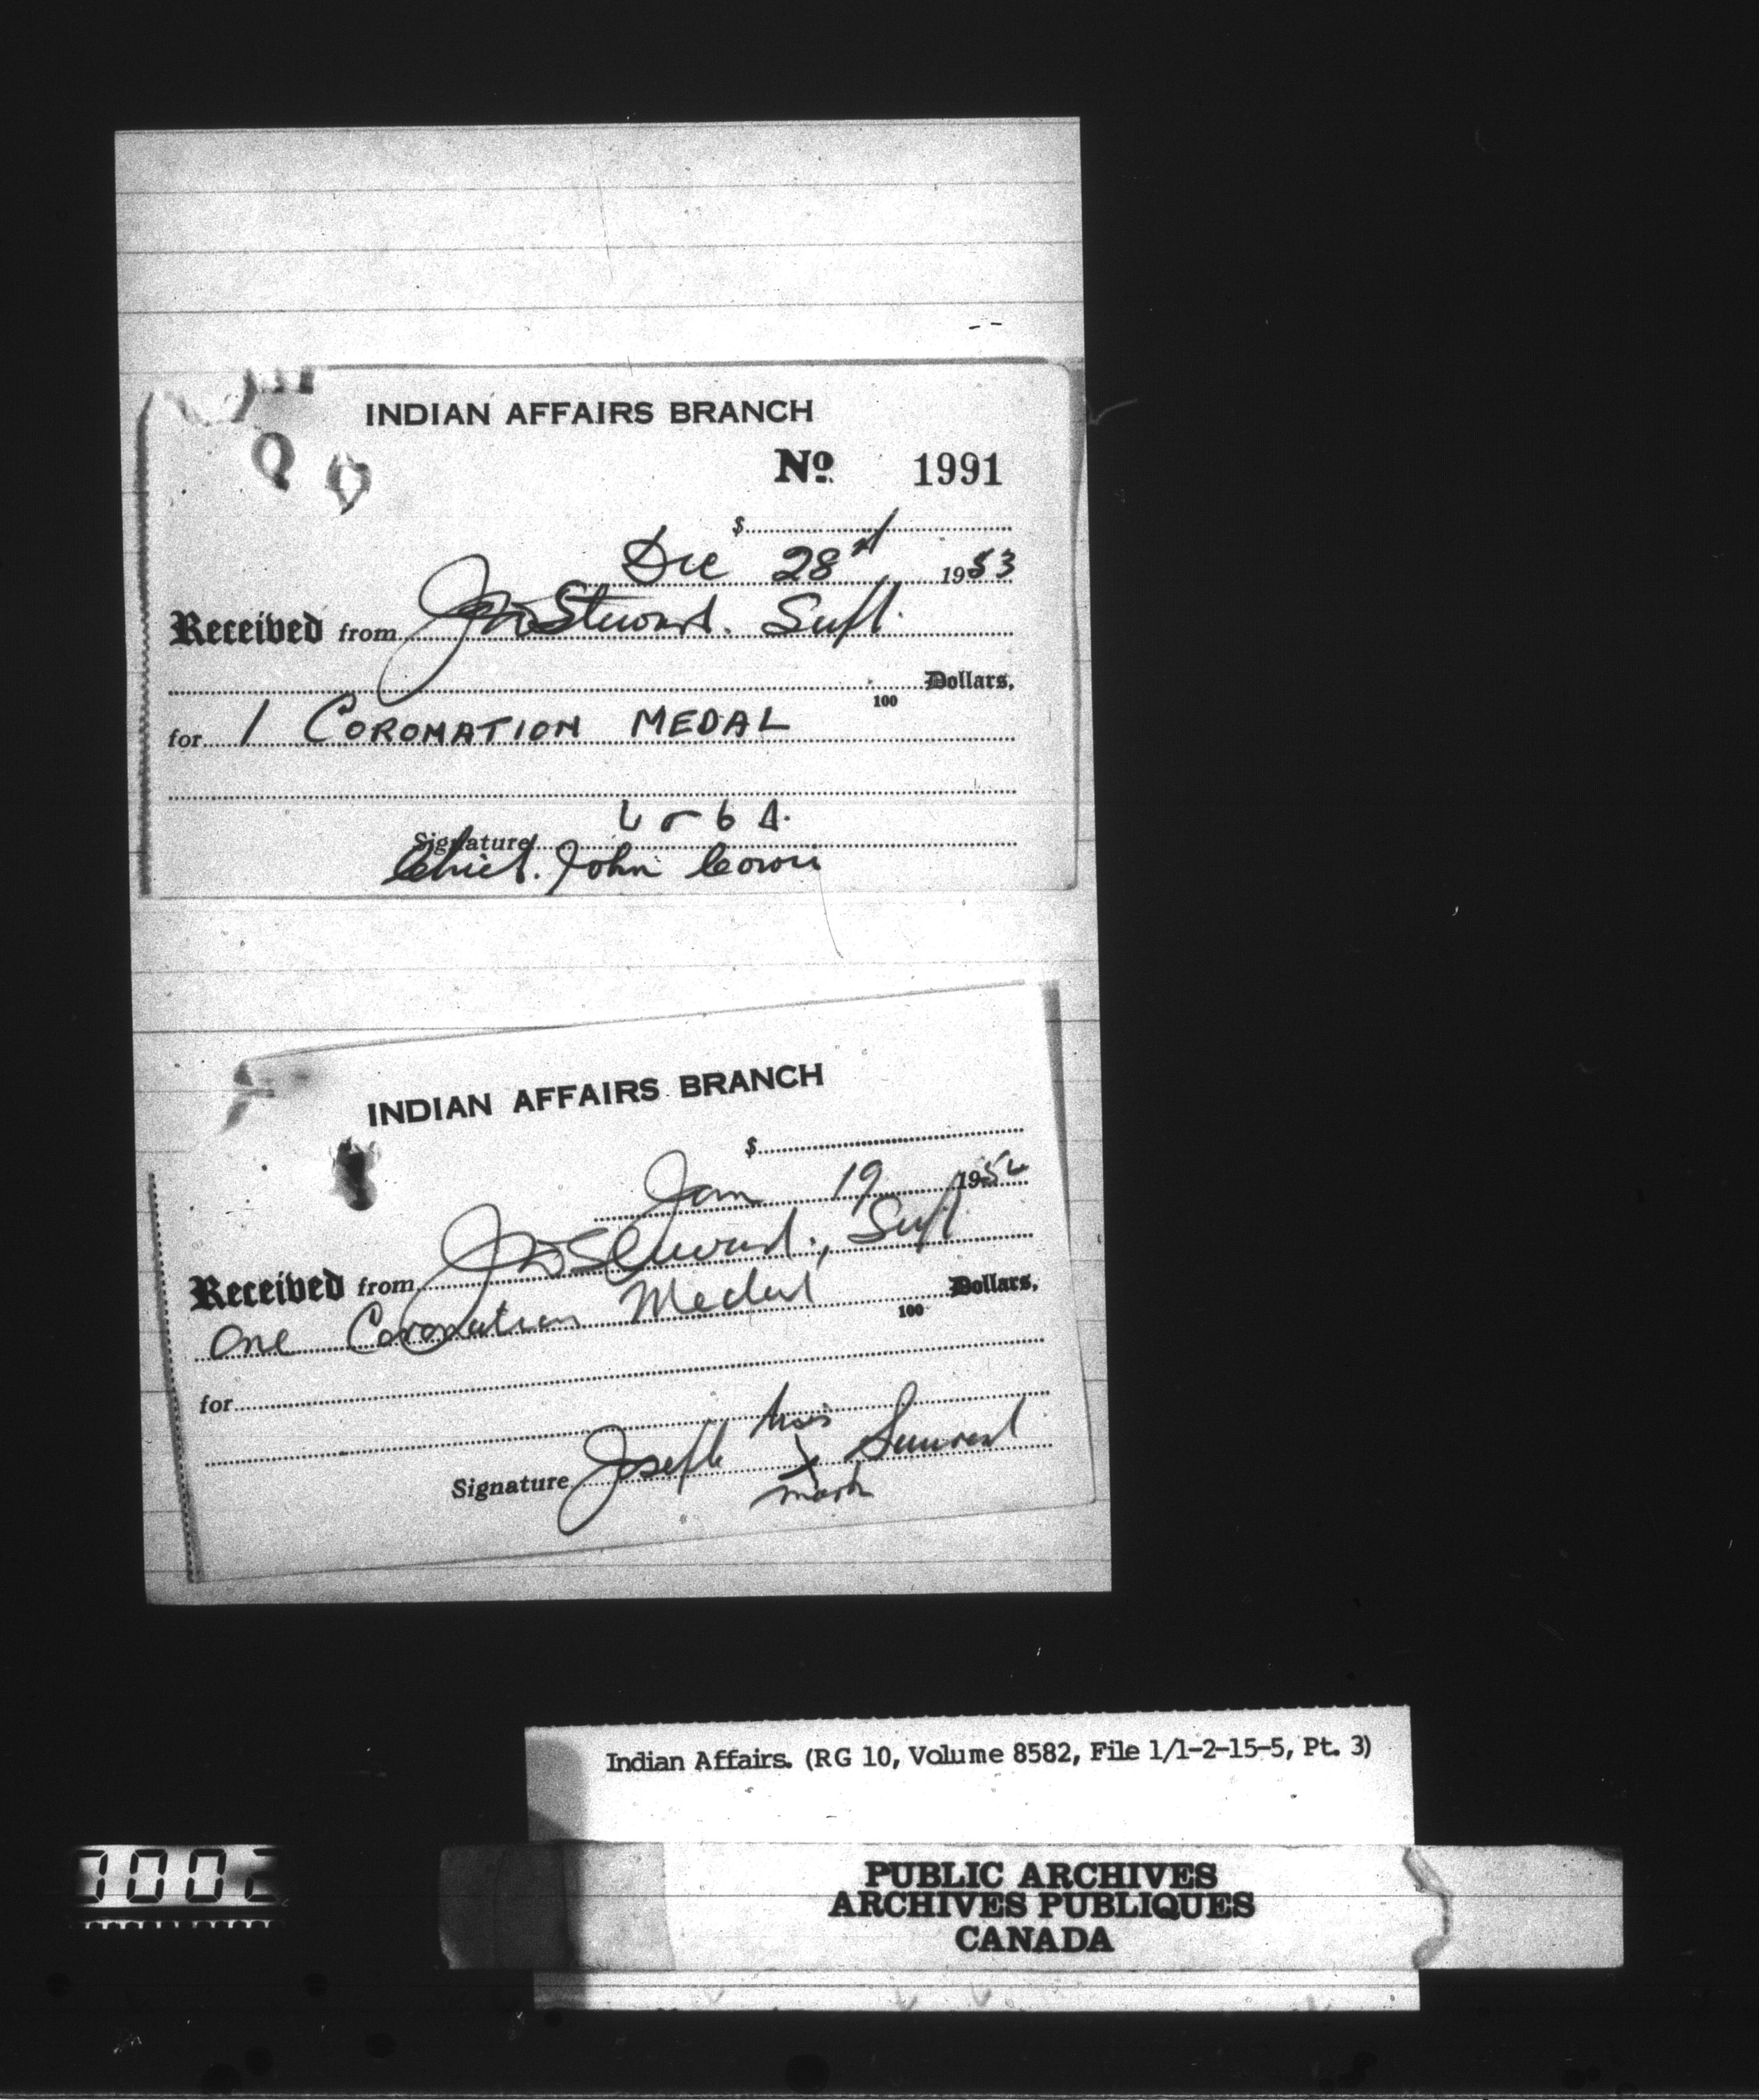 INDIAN AFFAIRS BRANCH
Nº 1991
$
Dec 28 1953
Received from J Stewart. Supt.
Dollars,
100
for 1 CORONATION MEDAL
ᒐ ᓂ ᑲ ᐃ.
Signature
Chief. John
INDIAN AFFAIRS BRANCH
$
Jan 19 195
Received from J Stewart., Supt
Dollars,
100
One Coronation Medal
for
his
Signature Joseph X
mark
Indian Affairs. (RG 10, Volume 8582, File 1/1-2-15-5, Pt. 3)
PUBLIC ARCHIVES
ARCHIVES PUBLIQUES
CANADA